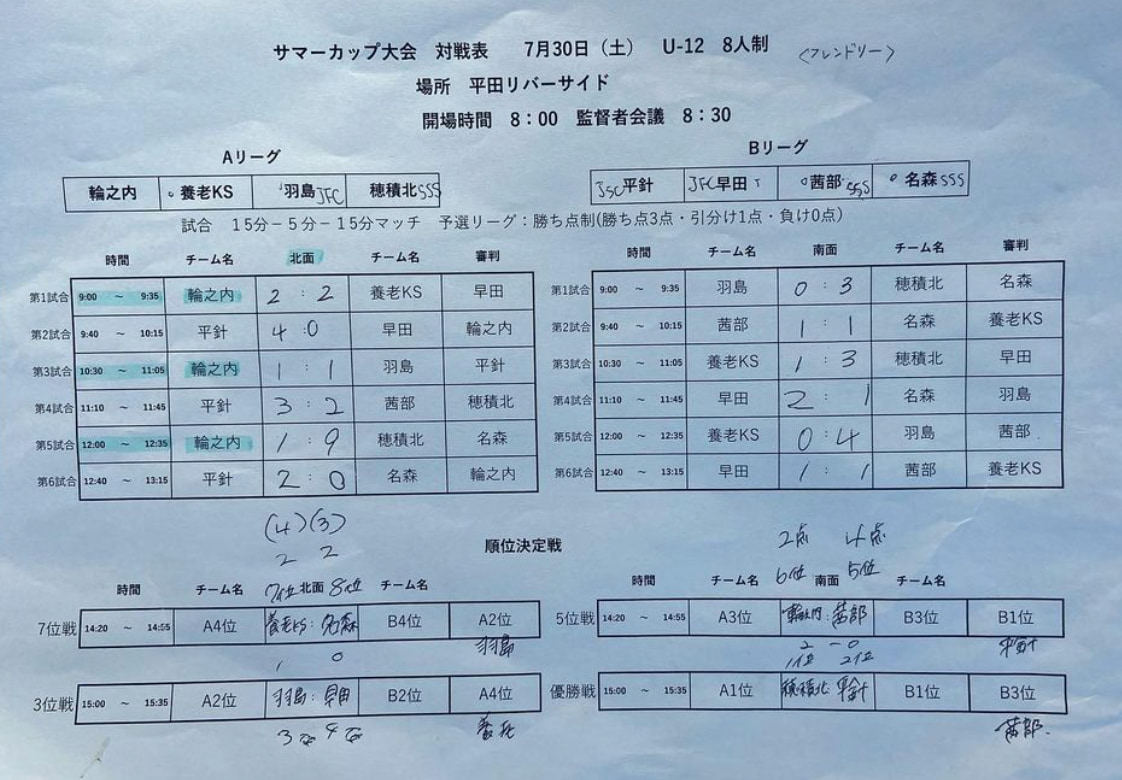 サマーカップ大会 対戦表 7月30日（土） U-12 8人制 <フレンドリー>
場所 平田リバーサイド
開場時間 8：00 監督者会議 8：30
Aリーグ
輪之内 養老KS 羽島JFC 穂積北SSS
Bリーグ
JSC平針 JFC早田 茜部SSS 名森SSS
試合 15分－5分－15分マッチ 予選リーグ：勝ち点制(勝ち点3点・引分け1点・負け0点)
時間 チーム名 北面 チーム名 審判
第1試合 9:00 ～ 9:35 輪之内 2 : 2 養老KS 早田
第2試合 9:40 ～ 10:15 平針 4 : 0 早田 輪之内
第3試合 10:30 ～ 11:05 輪之内 1 : 1 羽島 平針
第4試合 11:10 ～ 11:45 平針 3 : 2 茜部 穂積北
第5試合 12:00 ～ 12:35 輪之内 1 : 9 穂積北 名森
第6試合 12:40 ～ 13:15 平針 2 : 0 名森 輪之内
時間 チーム名 南面 チーム名 審判
第1試合 9:00 ～ 9:35 羽島 0 : 3 穂積北 名森
第2試合 9:40 ～ 10:15 茜部 1 : 1 名森 養老KS
第3試合 10:30 ～ 11:05 養老KS 1 : 3 穂積北 早田
第4試合 11:10 ～ 11:45 早田 2 : 1 名森 羽島
第5試合 12:00 ～ 12:35 養老KS 0 : 4 羽島 茜部
第6試合 12:40 ～ 13:15 早田 1 : 1 茜部 養老KS
順位決定戦
(4)(3)
2 2
時間 チーム名 7位 北面 8位 チーム名
7位戦 14:20 ～ 14:55 A4位 養老KS : 名森 B4位 A2位
羽島
1 0
3位戦 15:00 ～ 15:35 A2位 羽島 : 早田 B2位 A4位
養老
3位 4位
2点 4点
6位 5位
時間 チーム名 南面 チーム名
5位戦 14:20 ～ 14:55 A3位 輪之内 : 茜部 B3位 B1位
平針
2 - 0
1位 2位
優勝戦 15:00 ～ 15:35 A1位 穂積北 : 平針 B1位 B3位
茜部